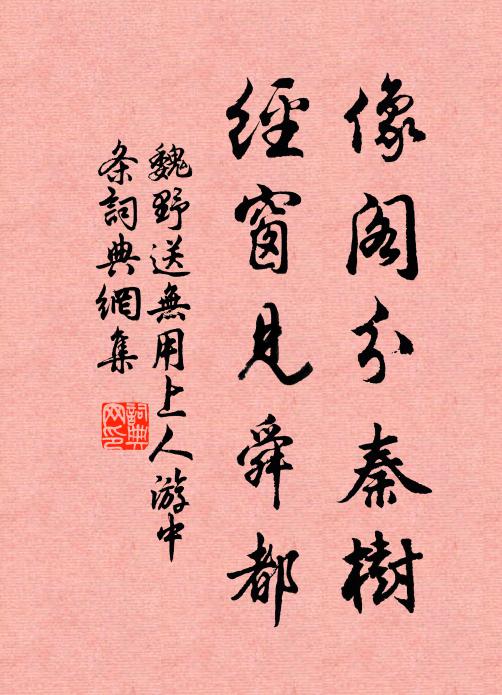 像阁分秦樹
經窗見舜都
魏野送無用上人游中
条詞典網集
詞典网印